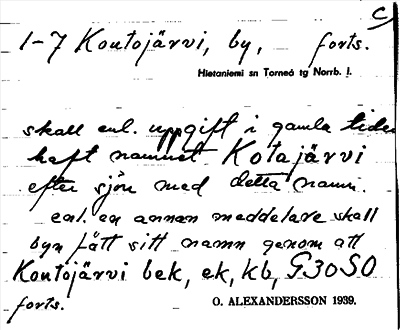 C
1-7 Koutojärvi, by, forts.
Hietaniemi sn Torneå tg Norrb. l.
skall enl. uppgift i gamla tider
haft namnet Kotajärvi
efter sjön med detta namn.
enl. en annan meddelare skall
byn fått sitt namn genom att
Koutojärvi bek, ek, kb, G30SO
forts.
O. ALEXANDERSSON 1939.